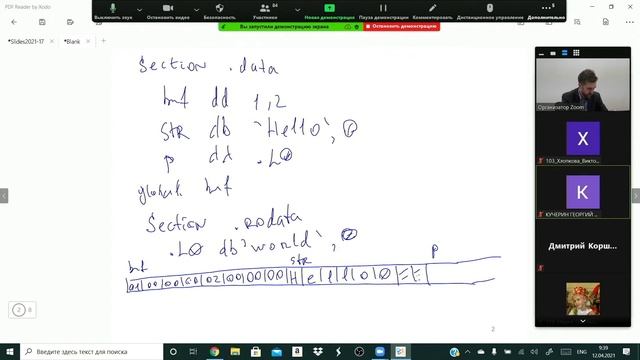 PDF Reader by Xodo
Выключить звук
Остановить видео
Безопасность
Участники
84
Новая демонстрация
Пауза демонстрации
Комментировать
Дистанционное управление
Дополнительно
Вы запустили демонстрацию экрана
Остановить демонстрацию
*Slides2021-17
*Blank
Section .data
buf dd 1,2
str db 'Hello', 0
p dd .L0
global buf
Section .rodata
.L0 db 'world', 0
buf str p
01 00 00 00 02 00 00 00 H e l l o 0
Организатор Zoom
X
103_Хлопкова_Викто...
К
КУЧЕРИН ГЕОРГИЙ ...
Дмитрий Корш...
2 8
2
Введите здесь текст для поиска
ENG
9:39
12.04.2021